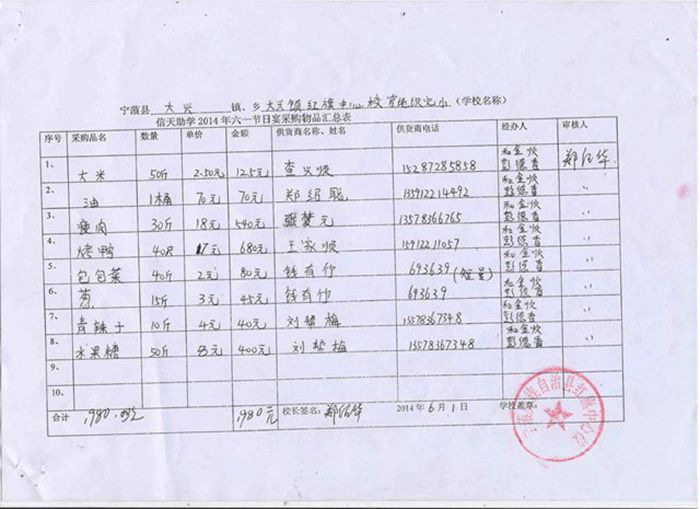 宁蒗县 大兴 镇、乡 大兴镇红旗中心校 完小(学校名称)
信天助学2014年六一节日宴采购物品汇总表
序号 采购品名 数量 单价 金额 供货商名称、姓名 供货商电话 经办人 审核人
1、 大米 50斤 2.50元 125元 查兴顺 15287285858 和金顺 彭德香 郑绍华
2、 油 1桶 70元 70元 郑绍聪 135912214492 和金顺 彭德香 〃
3、 瘦肉 30斤 18元 540元 张 元 13578366765 和金顺 彭德香 〃
4、 烤鸭 40只 17元 680元 王家顺 15912211057 和金顺 彭德香 〃
5、 包包菜 40斤 2元 80元 钱有竹 693639(短号) 和金顺 彭德香 〃
6、 葱 15斤 3元 45元 钱有竹 693639 和金顺 彭德香 〃
7、 青辣子 10斤 4元 40元 刘 梅 13578367348 和金顺 彭德香 〃
8、 水果糖 50斤 8元 400元 刘 梅 13578367348 和金顺 彭德香 〃
9、
10、
合计 1980.00 1980元 校长签名:郑绍华 2014年6月1日 学校盖章:
族自治县红旗中心校